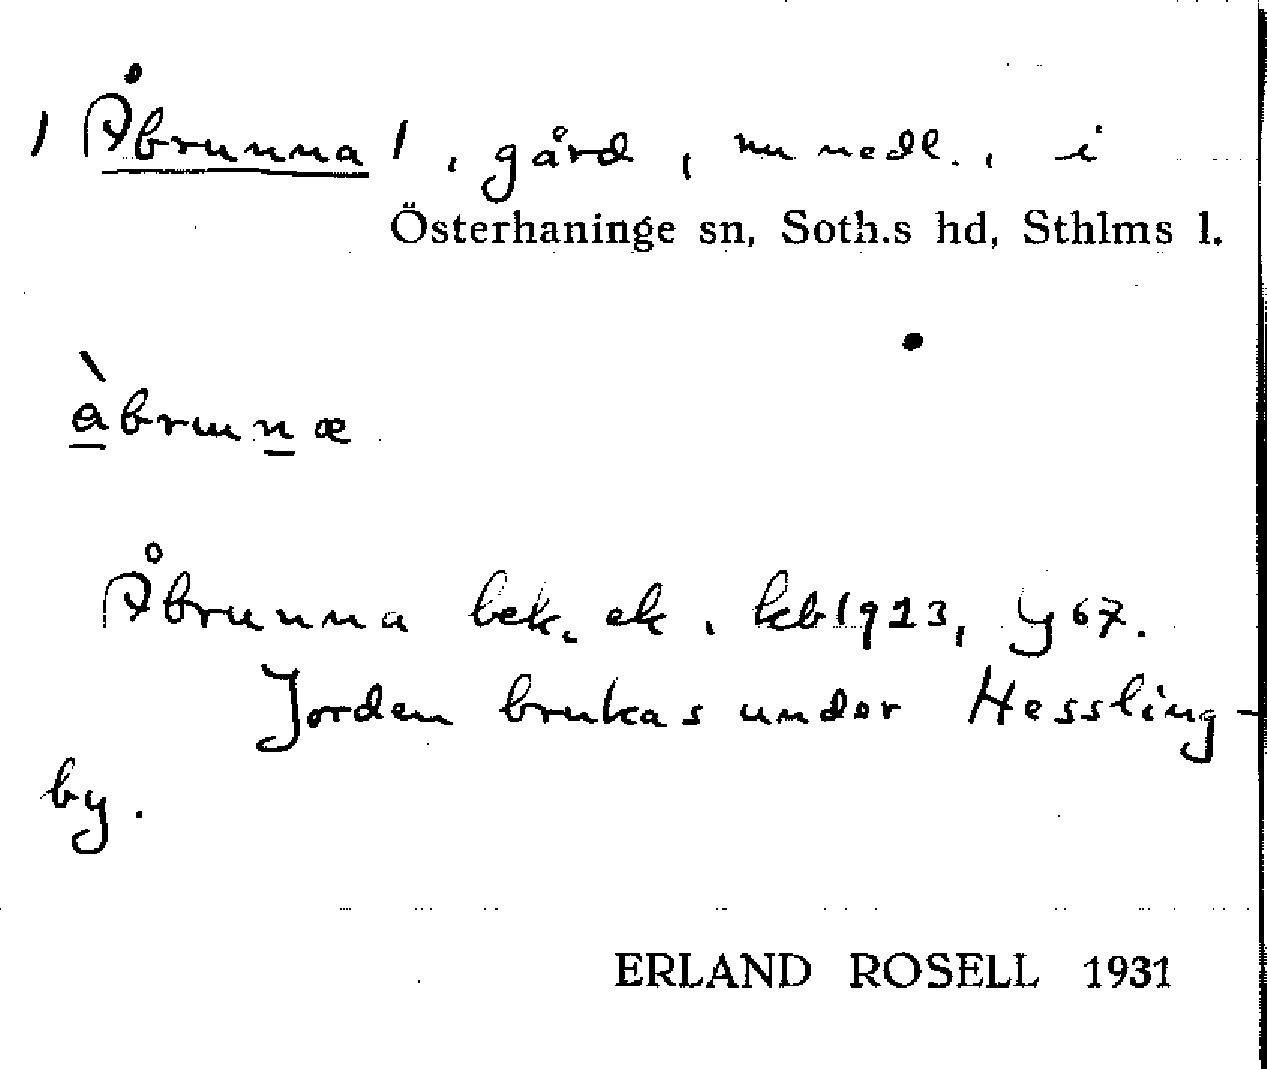 / Åbrunna /, gård, nu nedl., i
Österhaninge sn, Soth.s hd, Sthlms l.
àbrunnæ
Åbrunna bek. ek. kb 1923, y 67.
Jorden brukas under Hessling-
by.
ERLAND ROSELL 1931